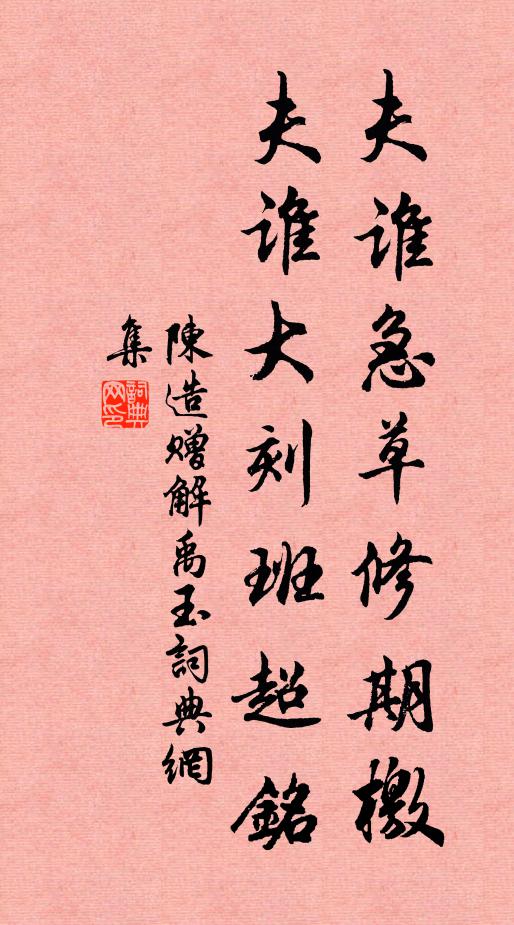 夫誰急草修期檄
夫誰大刻班超銘
陳造贈解禹玉詞典網
集
詞典網印